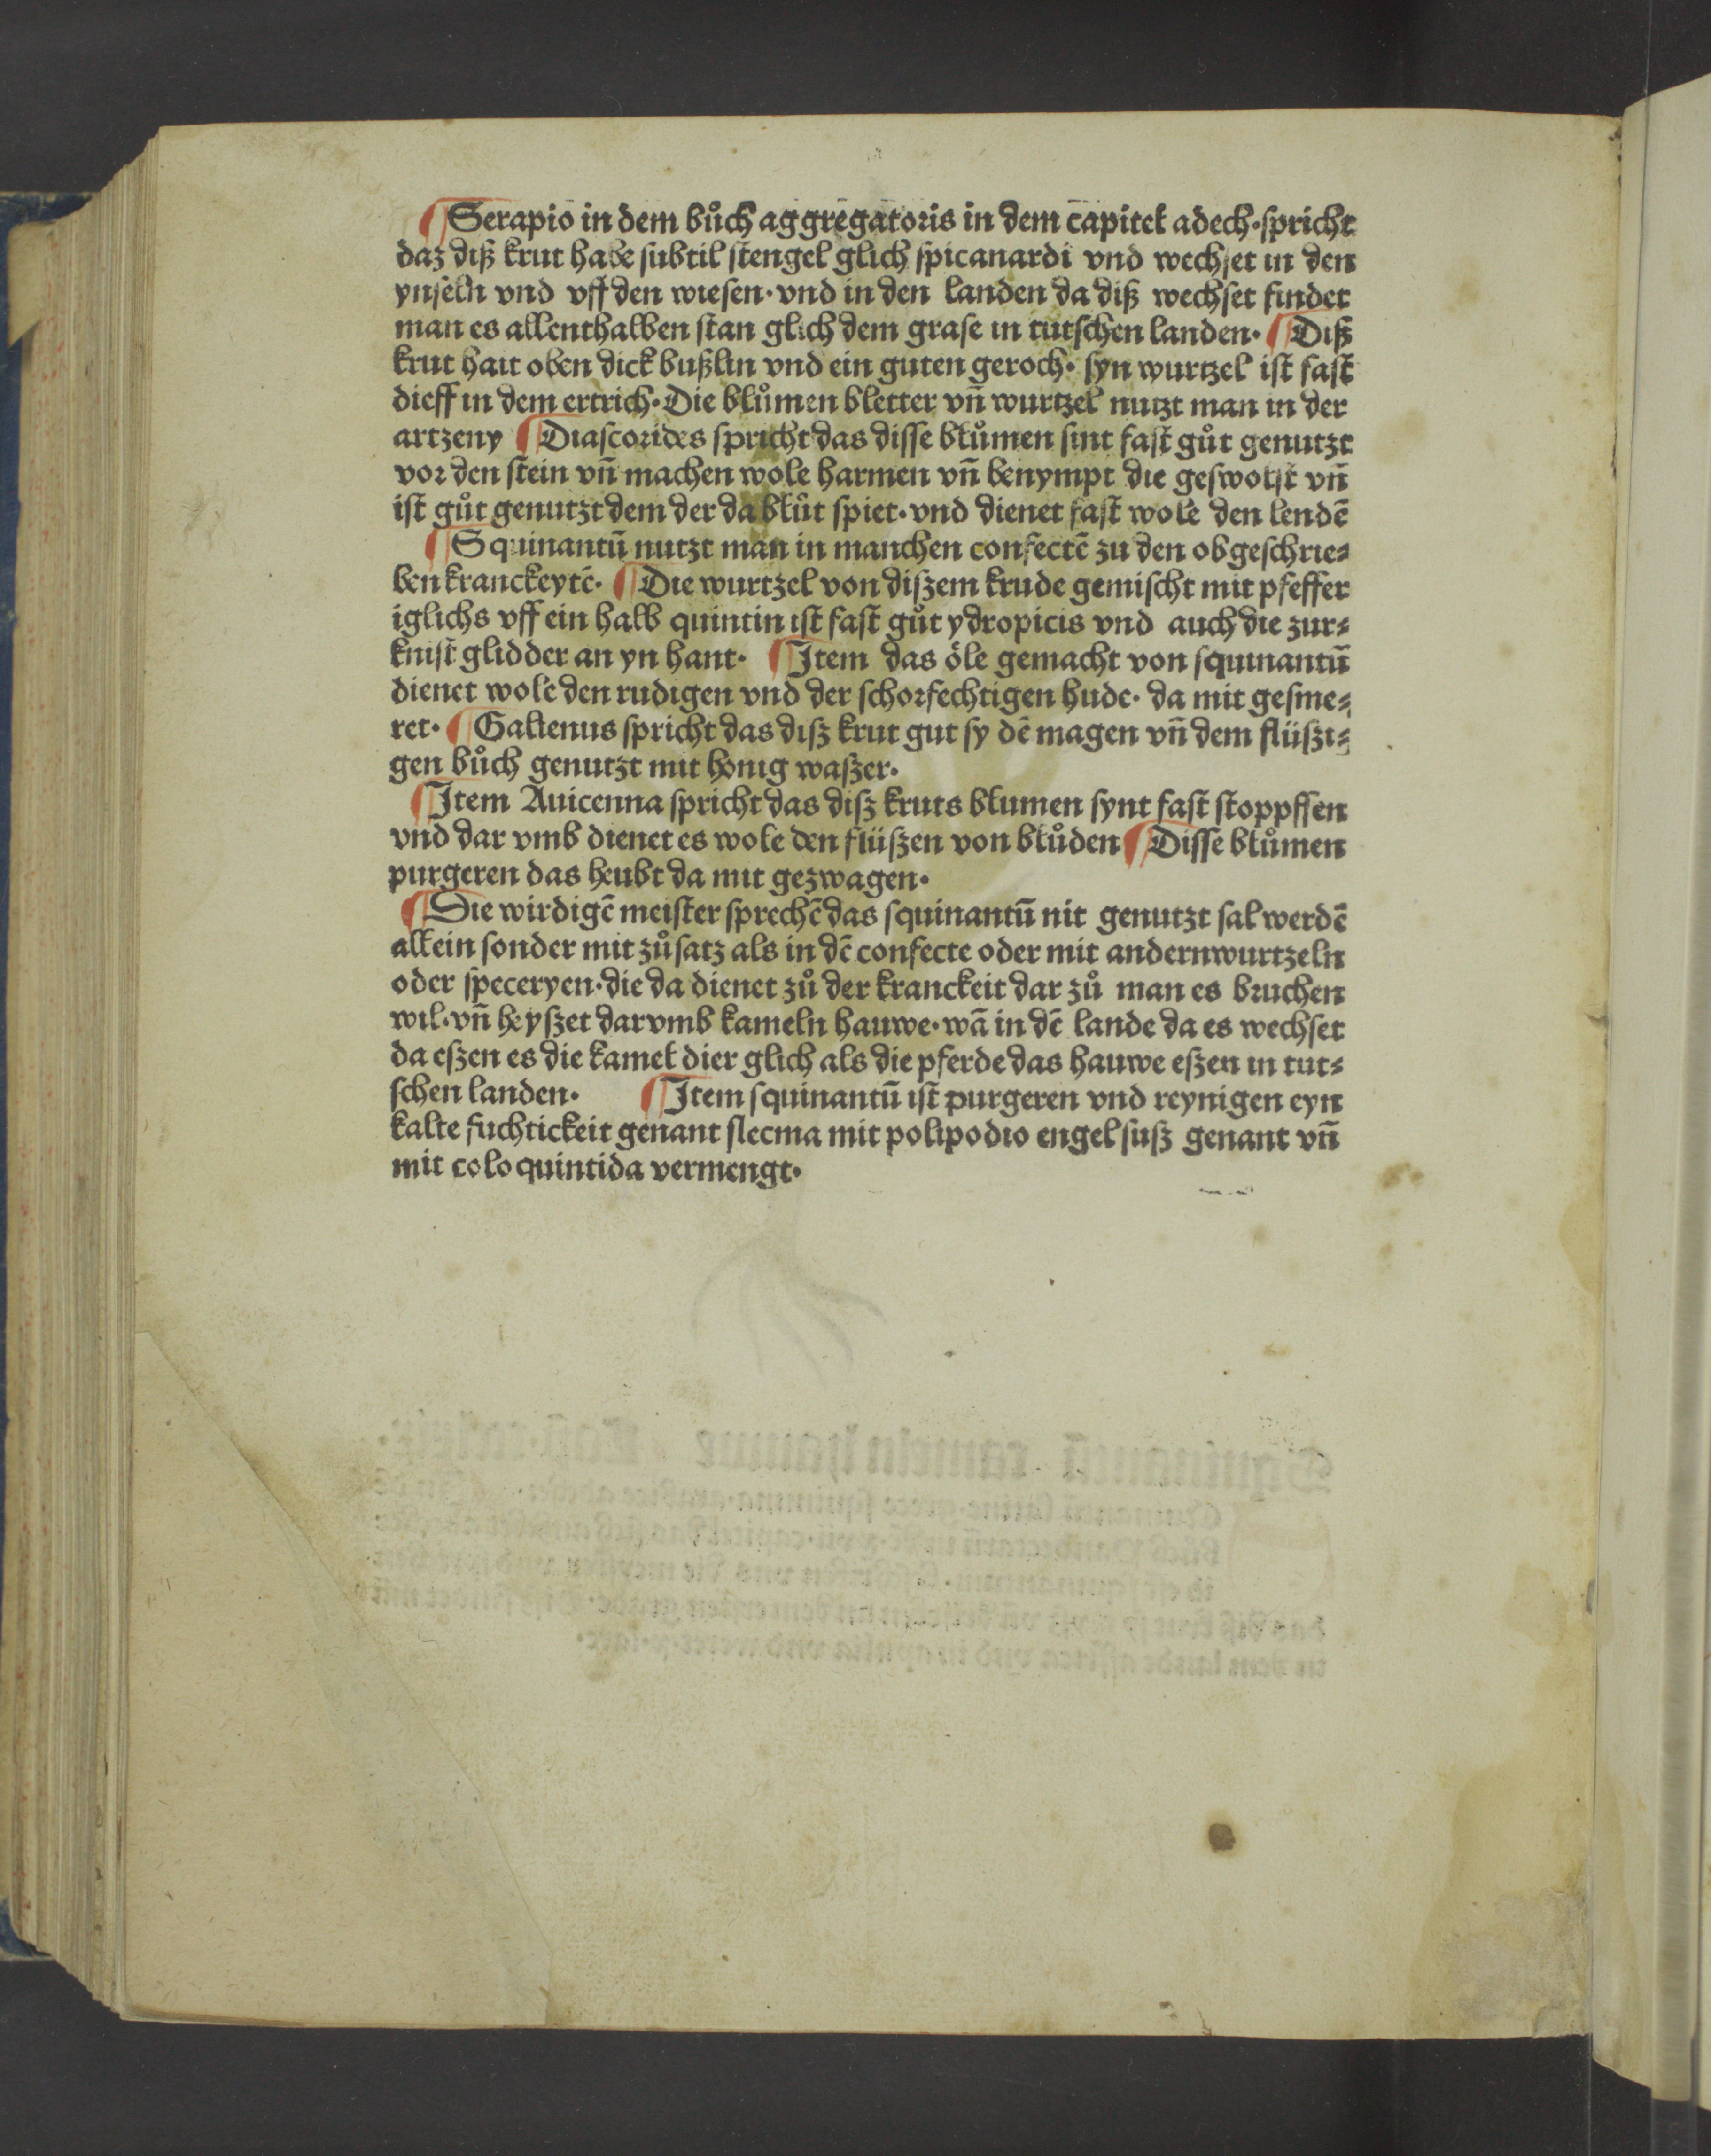 ¶ Serapio in dem bůch aggregatoris in dem capitel adech· spricht
daz diß krut habe subtil stengel glich spicanardi vnd wechset in den
ynseln vnd vff den wiesen· vnd in den landen da diß wechset findet
man es allenthalben stan glich dem grase in tutschen landen· ¶ Diß
krut hait oben dick bußlin vnd ein guten geroch· syn wurtzel ist fast
dieff in dem ertrich· Die blůmen bletter vñ wurtzel nutzt man in der
artzeny ¶ Diascorides spricht das disse blůmen sint fast gůt genutzt
vor den stein vñ machen wole harmen vñ benympt die geswolst vñ
ist gůt genutzt dem der da blůt spiet· vnd dienet fast wole den lendē
¶ Squinantū nutzt man in manchen confectē zu den obgeschrie⸗
ben kranckeytē· ¶ Die wurtzel von diszem krude gemischt mit pfeffer
iglichs vff ein halb quintin ist fast gůt ydropicis vnd auch die zur⸗
knist glidder an yn hant· ¶ Item das öle gemacht von squinantū
dienet wole den rudigen vnd der schorfechtigen hude· da mit gesme⸗
ret· ¶ Galienus spricht das disz krut gut sy dē magen vñ dem flüszi⸗
gen bůch genutzt mit honig waszer·
¶ Item Auicenna spricht das disz kruts blumen synt fast stoppffen
vnd dar vmb dienet es wole den flüszen von blůden ¶ Disse blůmen
purgeren das heubt da mit gezwagen·
¶ Die wirdigē meister sprechē das squinantū nit genutzt sal werdē
allein sonder mit zůsatz als in dē confecte oder mit andern wurtzeln
oder speceryen· die da dienet zů der kranckeit dar zů man es bruchen
wil· vñ heyszet darvmb kameln hauwe· wā in dē lande da es wechset
da eszen es die kamel dier glich als die pferde das hauwe eszen in tut⸗
schen landen· ¶ Item squinantū ist purgeren vnd reynigen eyn
kalte fuchtickeit genant flecma mit polipodio engelsusz genant vñ
mit coloquintida vermengt·